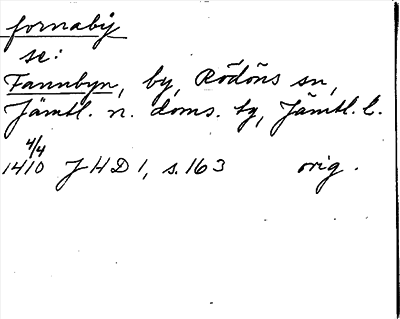 fornabij
se:
Fannbyn, by, Rödöns sn,
Jämtl. n. doms. tg, Jämtl. l.
4/4
1410 JHD 1, s. 163 orig.